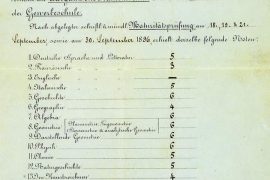 der Gewerbeschule.
Nach abgelegter schriftl. & mündl. Maturitätsprüfung am 18., 19. & 21.
September, sowie am 30. September 1896 erhielt derselbe folgende Noten:
1. Deutsche Sprache und Litteratur 5
2. Französische 3
3. Englische —
4. Italienische 5
5. Geschichte 6
6. Geographie 4
7. Algebra 6
8. Geometrie (Planimetrie, Trigonometrie, Stereometrie & analytische Geometrie) 6
9. Darstellende Geometrie 6
10. Physik 6
11. Chemie 5
12. Naturgeschichte 5
13. Im Kunstzeichnen 4